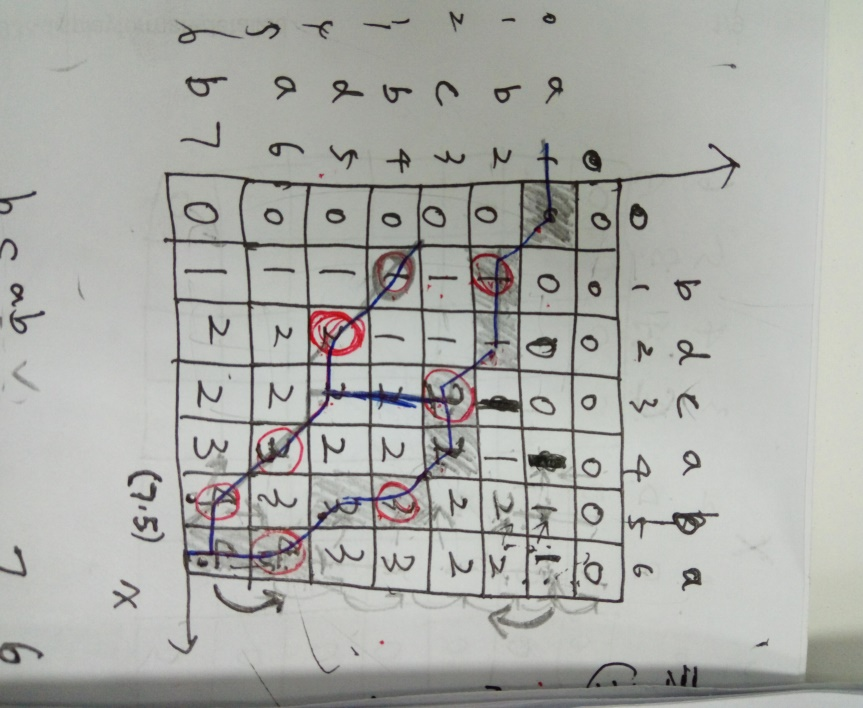 b d c a b a
0 1 2 3 4 5 6
0 0 0 0 0 0 0 0
0 a 1 0 0 0 0 1 1
1 b 2 0 1 1 1 2 2
2 c 3 0 1 1 2 2 2 2
1 b 4 0 1 1 2 2 3 3
4 d 5 0 1 2 2 2 3 3
5 a 6 0 1 2 2 3 3 4
6 b 7 0 1 2 2 3 4 4
(7.5) x
b c a b 7 6